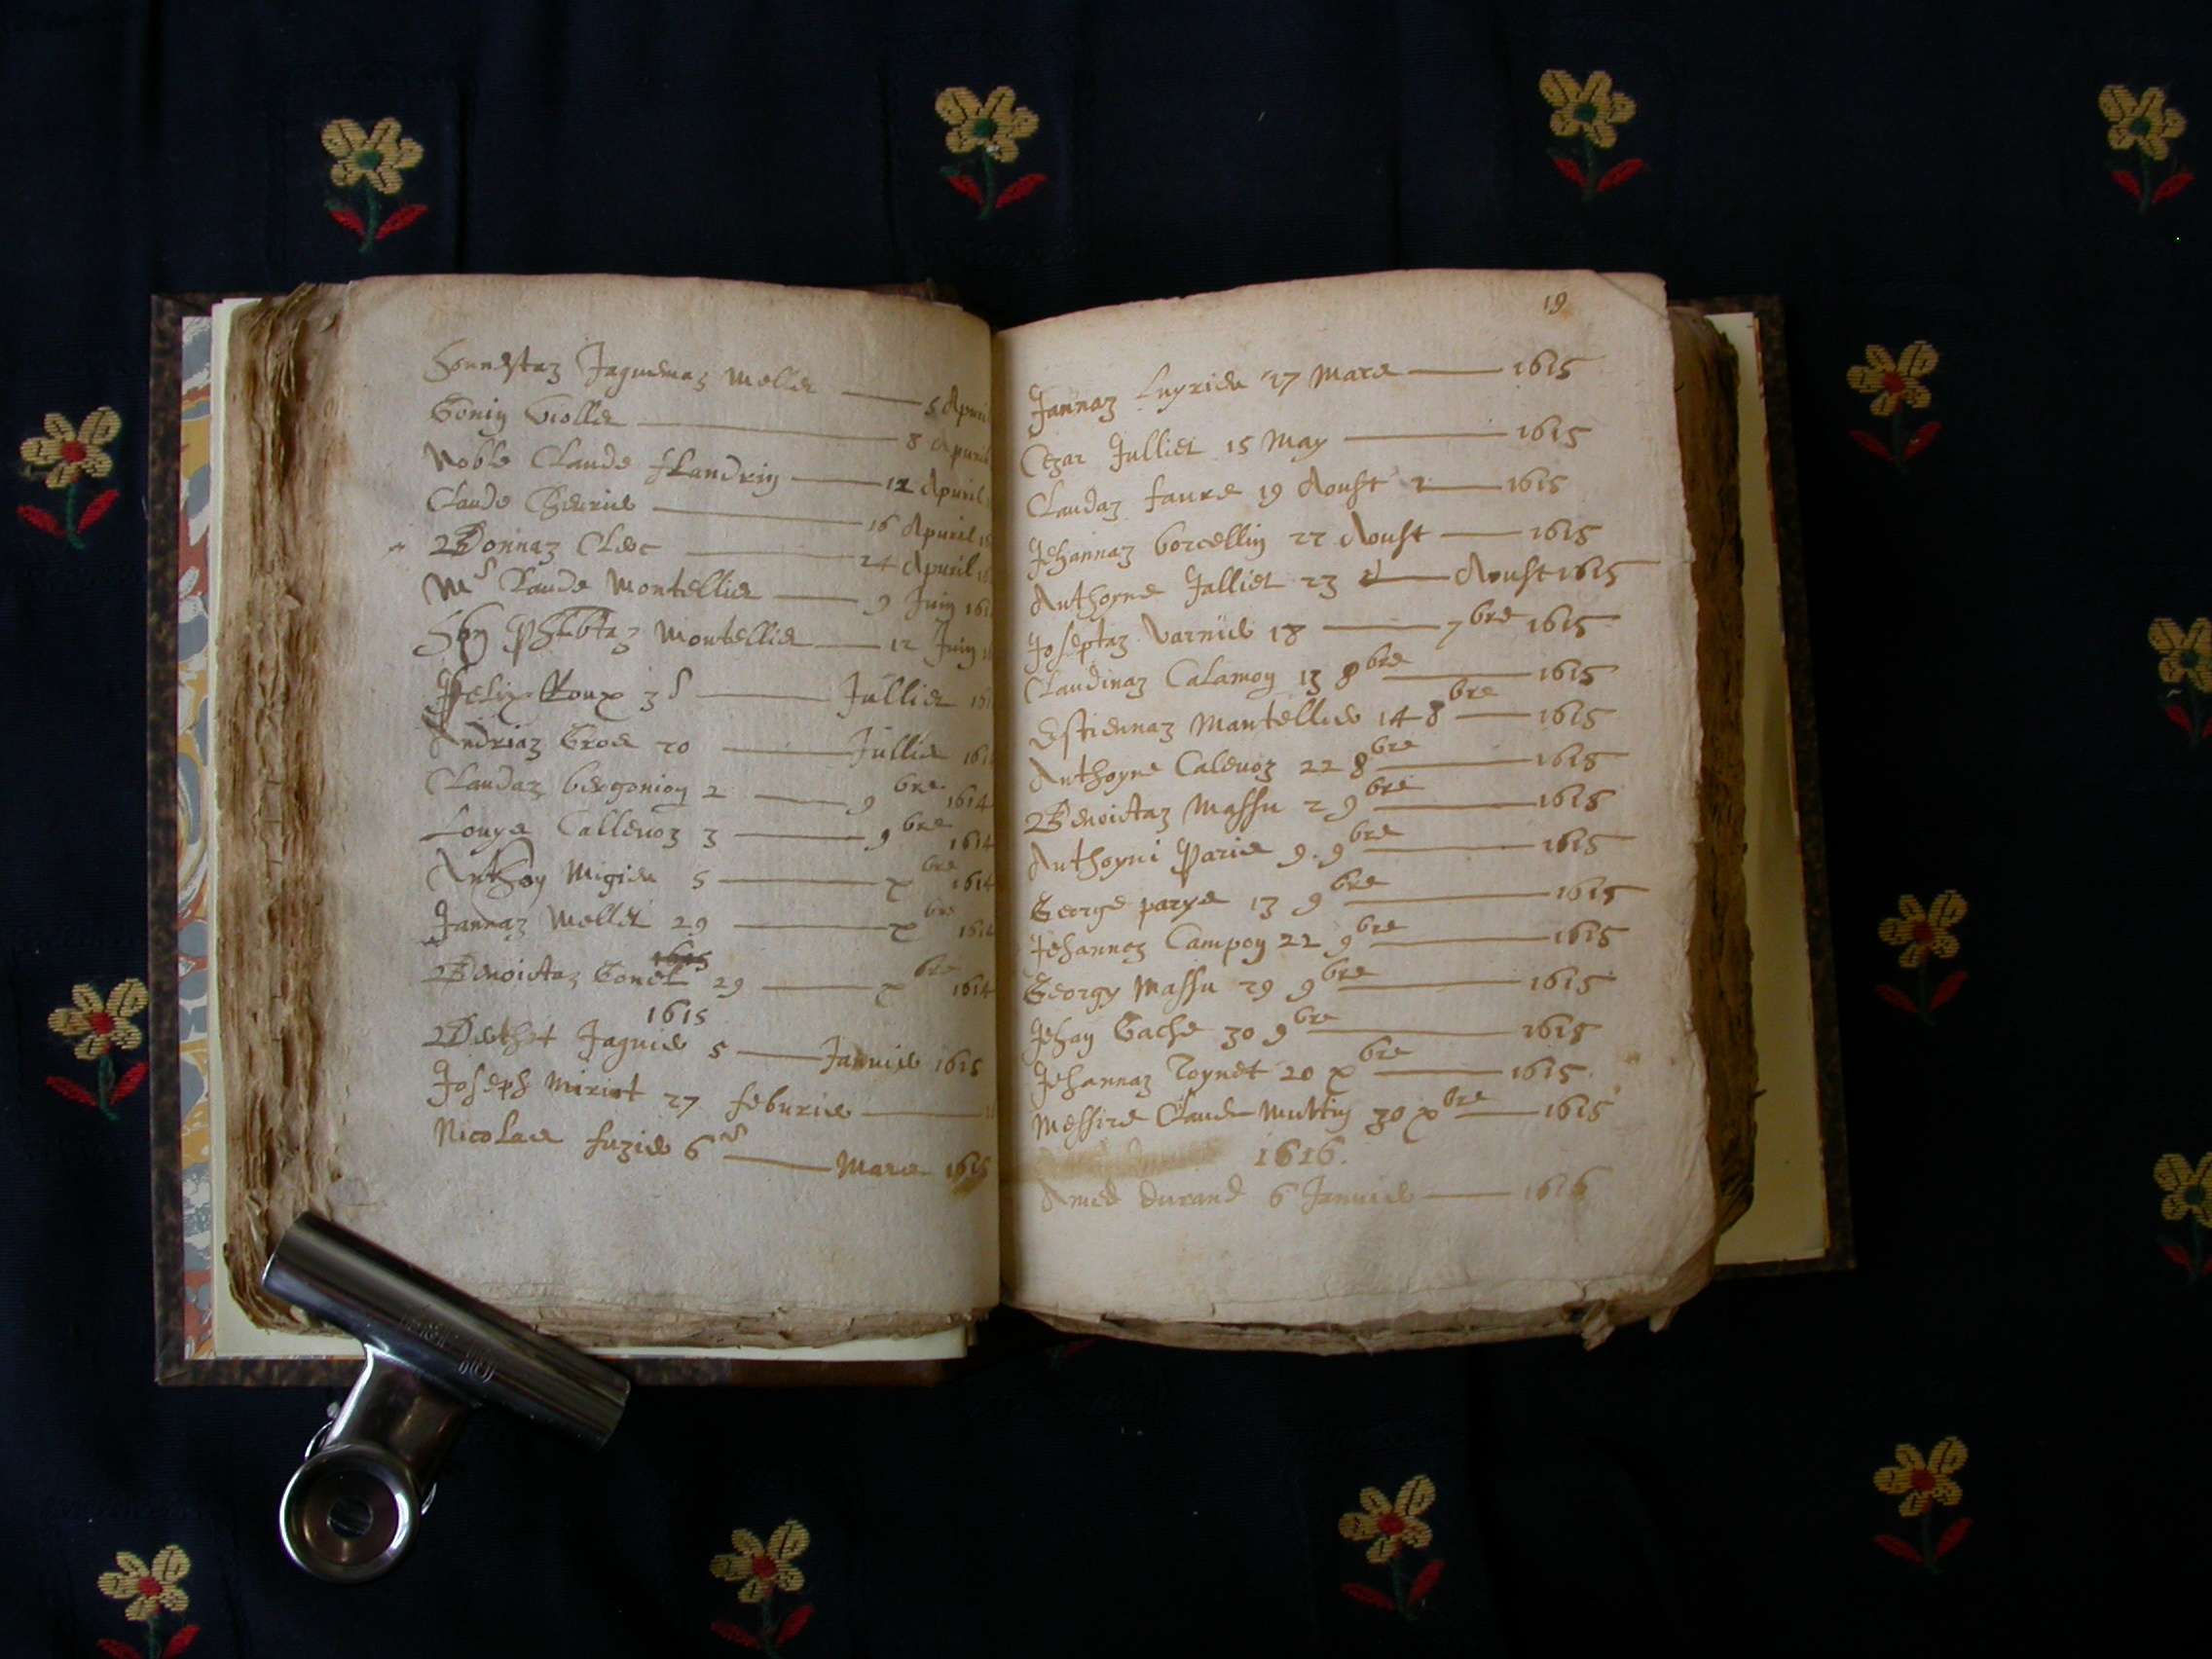 Jaquemaz Mollet — 5 Apuri
8 Apuril
Noble Claude fLandrin — 12 Apuril
Claude — 16 Apuril
24 Apuril
Claude Montellier — 9 Juin 161
Montellier — 12 Juin
Felix Roux 3 — Jullier 161
Andriaz Gros 20 — Jullie 161
Claudaz bergonion 2 — 9bre 1614
Louys Callevoz 3 — 9bre 1614
Anthoy Migieu 5 — xbre 1614
Jannaz Mollet 29 — xbre 1614
1615
Benoictaz Gonet 29 — xbre 1614
1615
Jaquier 5 — Januier 1615
Joseph Miriot 27 feburier — 1
Nicolas fuzier 6 — Mars 1615
19
Jannaz Luyrieu 27 Mars — 1615
Cezar Jullier 15 May — 1615
Claudaz faure 19 Aoust — 1615
Jehannaz borcellin 22 Aoust — 1615
Anthoyne Jallier 23 — Aoust 1615
Joseptaz Varnier 18 — 7bre 1615
Claudinaz Calamon 13 8bre — 1615
Estiennaz Mantellier 14 8bre — 1615
Anthoyne Calevoz 22 8bre — 1615
Benoictaz Massu 2 9bre — 1615
Anthoyni Parie 9 . 9bre — 1615
George parye 13 9bre — 1615
Jehannaz Campon 22 9bre — 1615
Georgy Massu 29 9bre — 1615
Jehan Gache 30 9bre — 1615
Jehannaz Toynet 20 xbre — 1615
Messire Claude Muttin 30 xbre — 1615
1616.
Amed durand 6 Januier — 1616